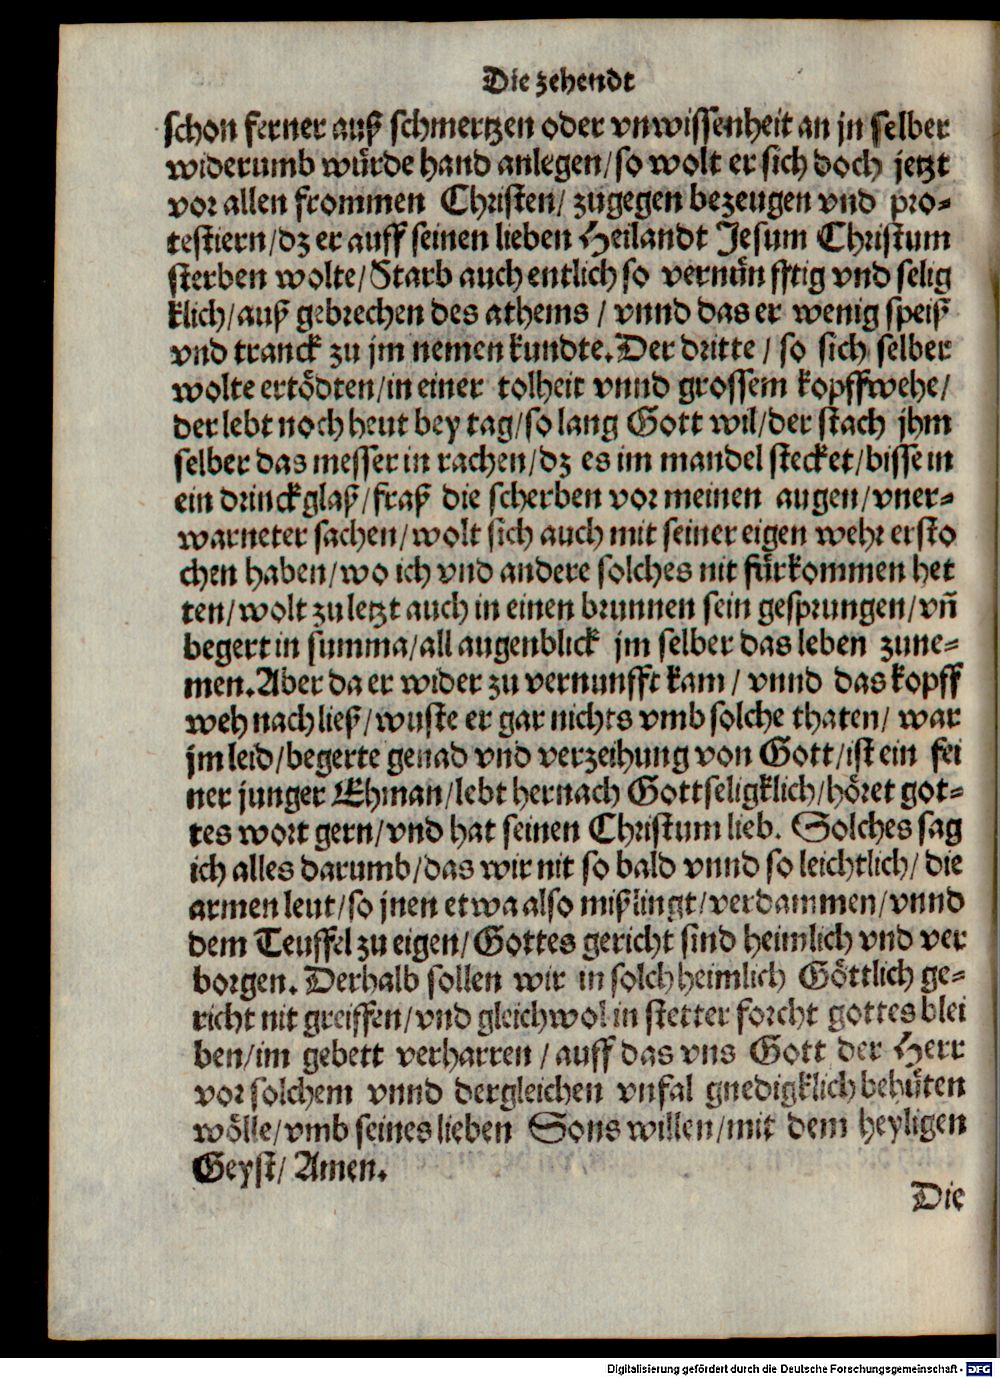 Die zehendt
schon ferner auß schmertzen oder vnwissenheit an jn selber
widerumb würde hand anlegen/so wolt er sich doch jetzt
vor allen frommen Christen/ zugegen bezeugen vnd pro-
testiern/dz er auff seinen lieben Heilandt Jesum Christum
sterben wolte/Starb auch entlich so vernünfftig vnd selig
klich/auß gebrechen des athems / vnnd das er wenig speiß
vnd tranck zu jm nemen kundte. Der dritte / so sich selber
wolte ertödten/in einer tolheit vnnd grossem kopffwehe/
der lebt noch heut bey tag/so lang Gott wil/der stach jhm
selber das messer in rachen/dz es im mandel stecket/bisse in
ein drinckglaß/fraß die scherben vor meinen augen/vner-
warneter sachen/wolt sich auch mit seiner eigen wehr ersto
chen haben/wo ich vnd andere solches nit fürkommen het
ten/wolt zu letzt auch in einen brunnen sein gesprungen/vñ
begert in summa/all augenblick jm selber das leben zune-
men. Aber da er wider zu vernunfft kam / vnnd das kopff
weh nach ließ/wuste er gar nichts vmb solche thaten/ war
jm leid/begerte genad vnd verzeihung von Gott/ist ein fei
ner junger Ehman/lebt hernach Gottseligklich/höret got-
tes wort gern/vnd hat seinen Christum lieb. Solches sag
ich alles darumb/das wir nit so bald vnnd so leichtlich/ die
armen leut/so jnen etwa also mißlingt/verdammen/vnnd
dem Teuffel zu eigen/Gottes gericht sind heimlich vnd ver
borgen. Derhalb sollen wir in solch heimlich Göttlich ge-
richt nit greiffen/vnd gleichwol in stetter forcht gottes blei
ben/im gebett verharren / auff das vns Gott der Herr
vor solchem vnnd dergleichen vnfal gnedigklich behüten
wölle/vmb seines lieben Sons willen/mit dem heyligen
Geyst/ Amen.
Die
Digitalisierung gefördert durch die Deutsche Forschungsgemeinschaft - DFG